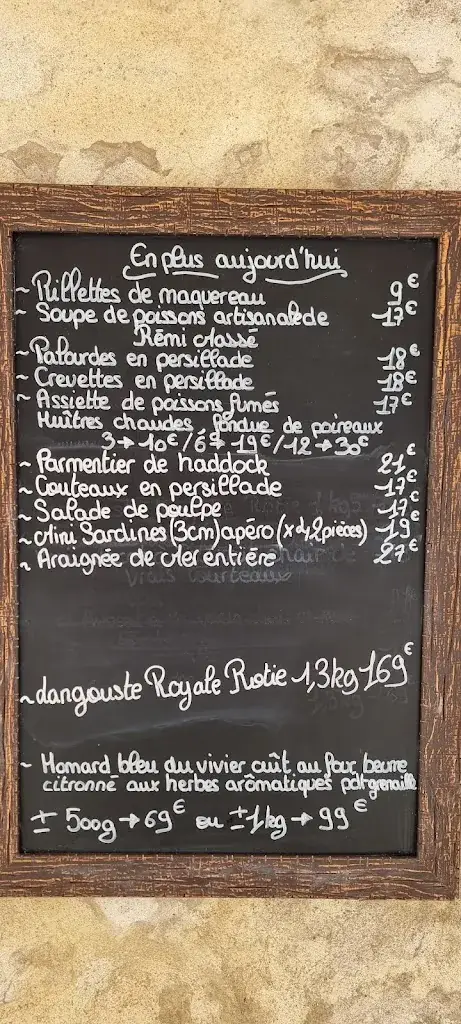 En plus aujourd'hui
~ Rillettes de maquereau 9€
~ Soupe de poissons artisanale de 17€
Rémi Massé
~ Palourdes en persillade 18€
~ Crevettes en persillade 18€
~ Assiette de poissons fumés 17€
Huîtres chaudes, fondue de poireaux
3 → 10€ / 6 → 19€ / 12 → 30€
~ Parmentier de haddock 21€
~ Couteaux en persillade 17€
~ Salade de poulpe 17€
~ Mini Sardines (3cm) apéro (x 42 pièces) 19€
~ Araignée de Mer entière 27€
~ Langouste Royale Rotie 1,3kg 169€
~ Homard bleu du vivier cuit au four, beurre
citronné aux herbes arômatiques pdt grenaille
± 500g → 69€ ou ± 1kg → 99€